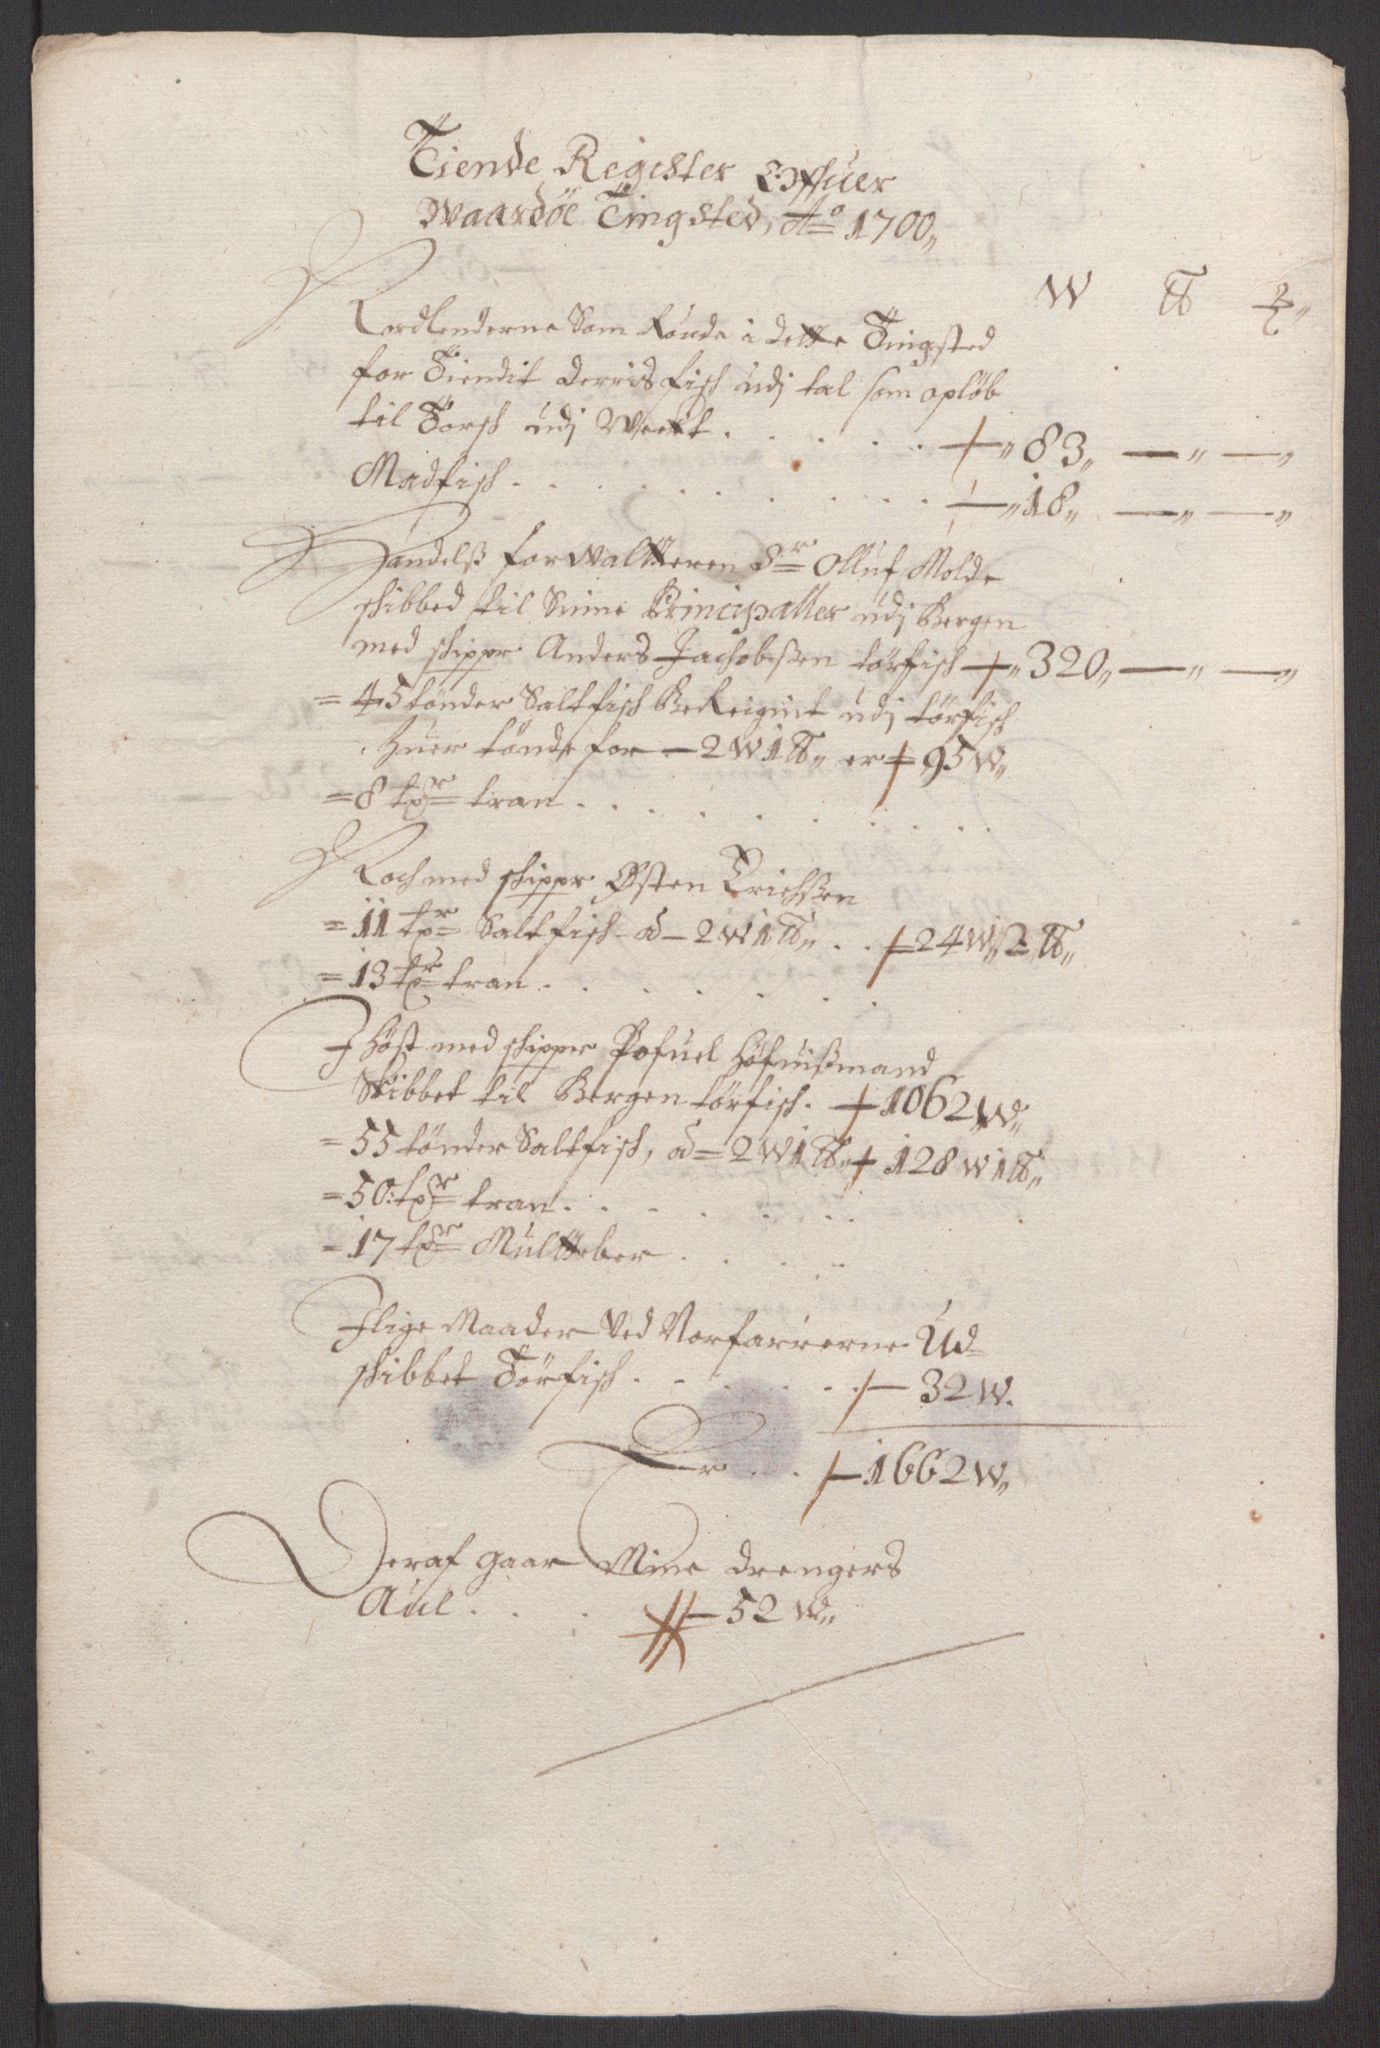 Tiende Register Offuer
Waardöe Tingsted, Ao 1700„
W ℔ ℥„
Nordlenderne Som Rönde i dette Tingsted
for Tiendit derris fisk udj tal som opløb
til Torsk udj Weekt . . . . . „ 83„ — „ — „
Madfisk . . . . . . . . . — „ 18„ — „ — „
Handelß forwaltteren Sr Olluf Molde
skibbed til Sinne Principaller udj Bergen
med skippr Anders Jachobßen törfisk — „ 320„ — „ — „
= 45 tönder Saltfisk BeReignit udj törfisk
huer tönde for — 2 W 1 ℔„ er = 95 W„
= 8 tør tran . . . . . . . .
Noch med skippr Østen Erichßen
= 11 tr Saltfisk a — 2 W 1 ℔„ . . — 24 W„ 2 ℔„
= 13 tr tran . . . . . . .
J höst med skipper Pofuel Höfuißmand
Skibbet til Bergen törfisk . — 1062 W„
= 55 tönder Saltfisk, a = 2 W 1 ℔„ 128 W 1 ℔„
= 50: tr tran . . . . . . .
= 17 tr Multteber . . . .
J lige Maader Ved Norfarrerne Ud=
skibbet Törfisk . . . . . — 32 W.
Er . . — 1662 W„
Deraf gaar Mine drengers
Aul . . . — 52 W„